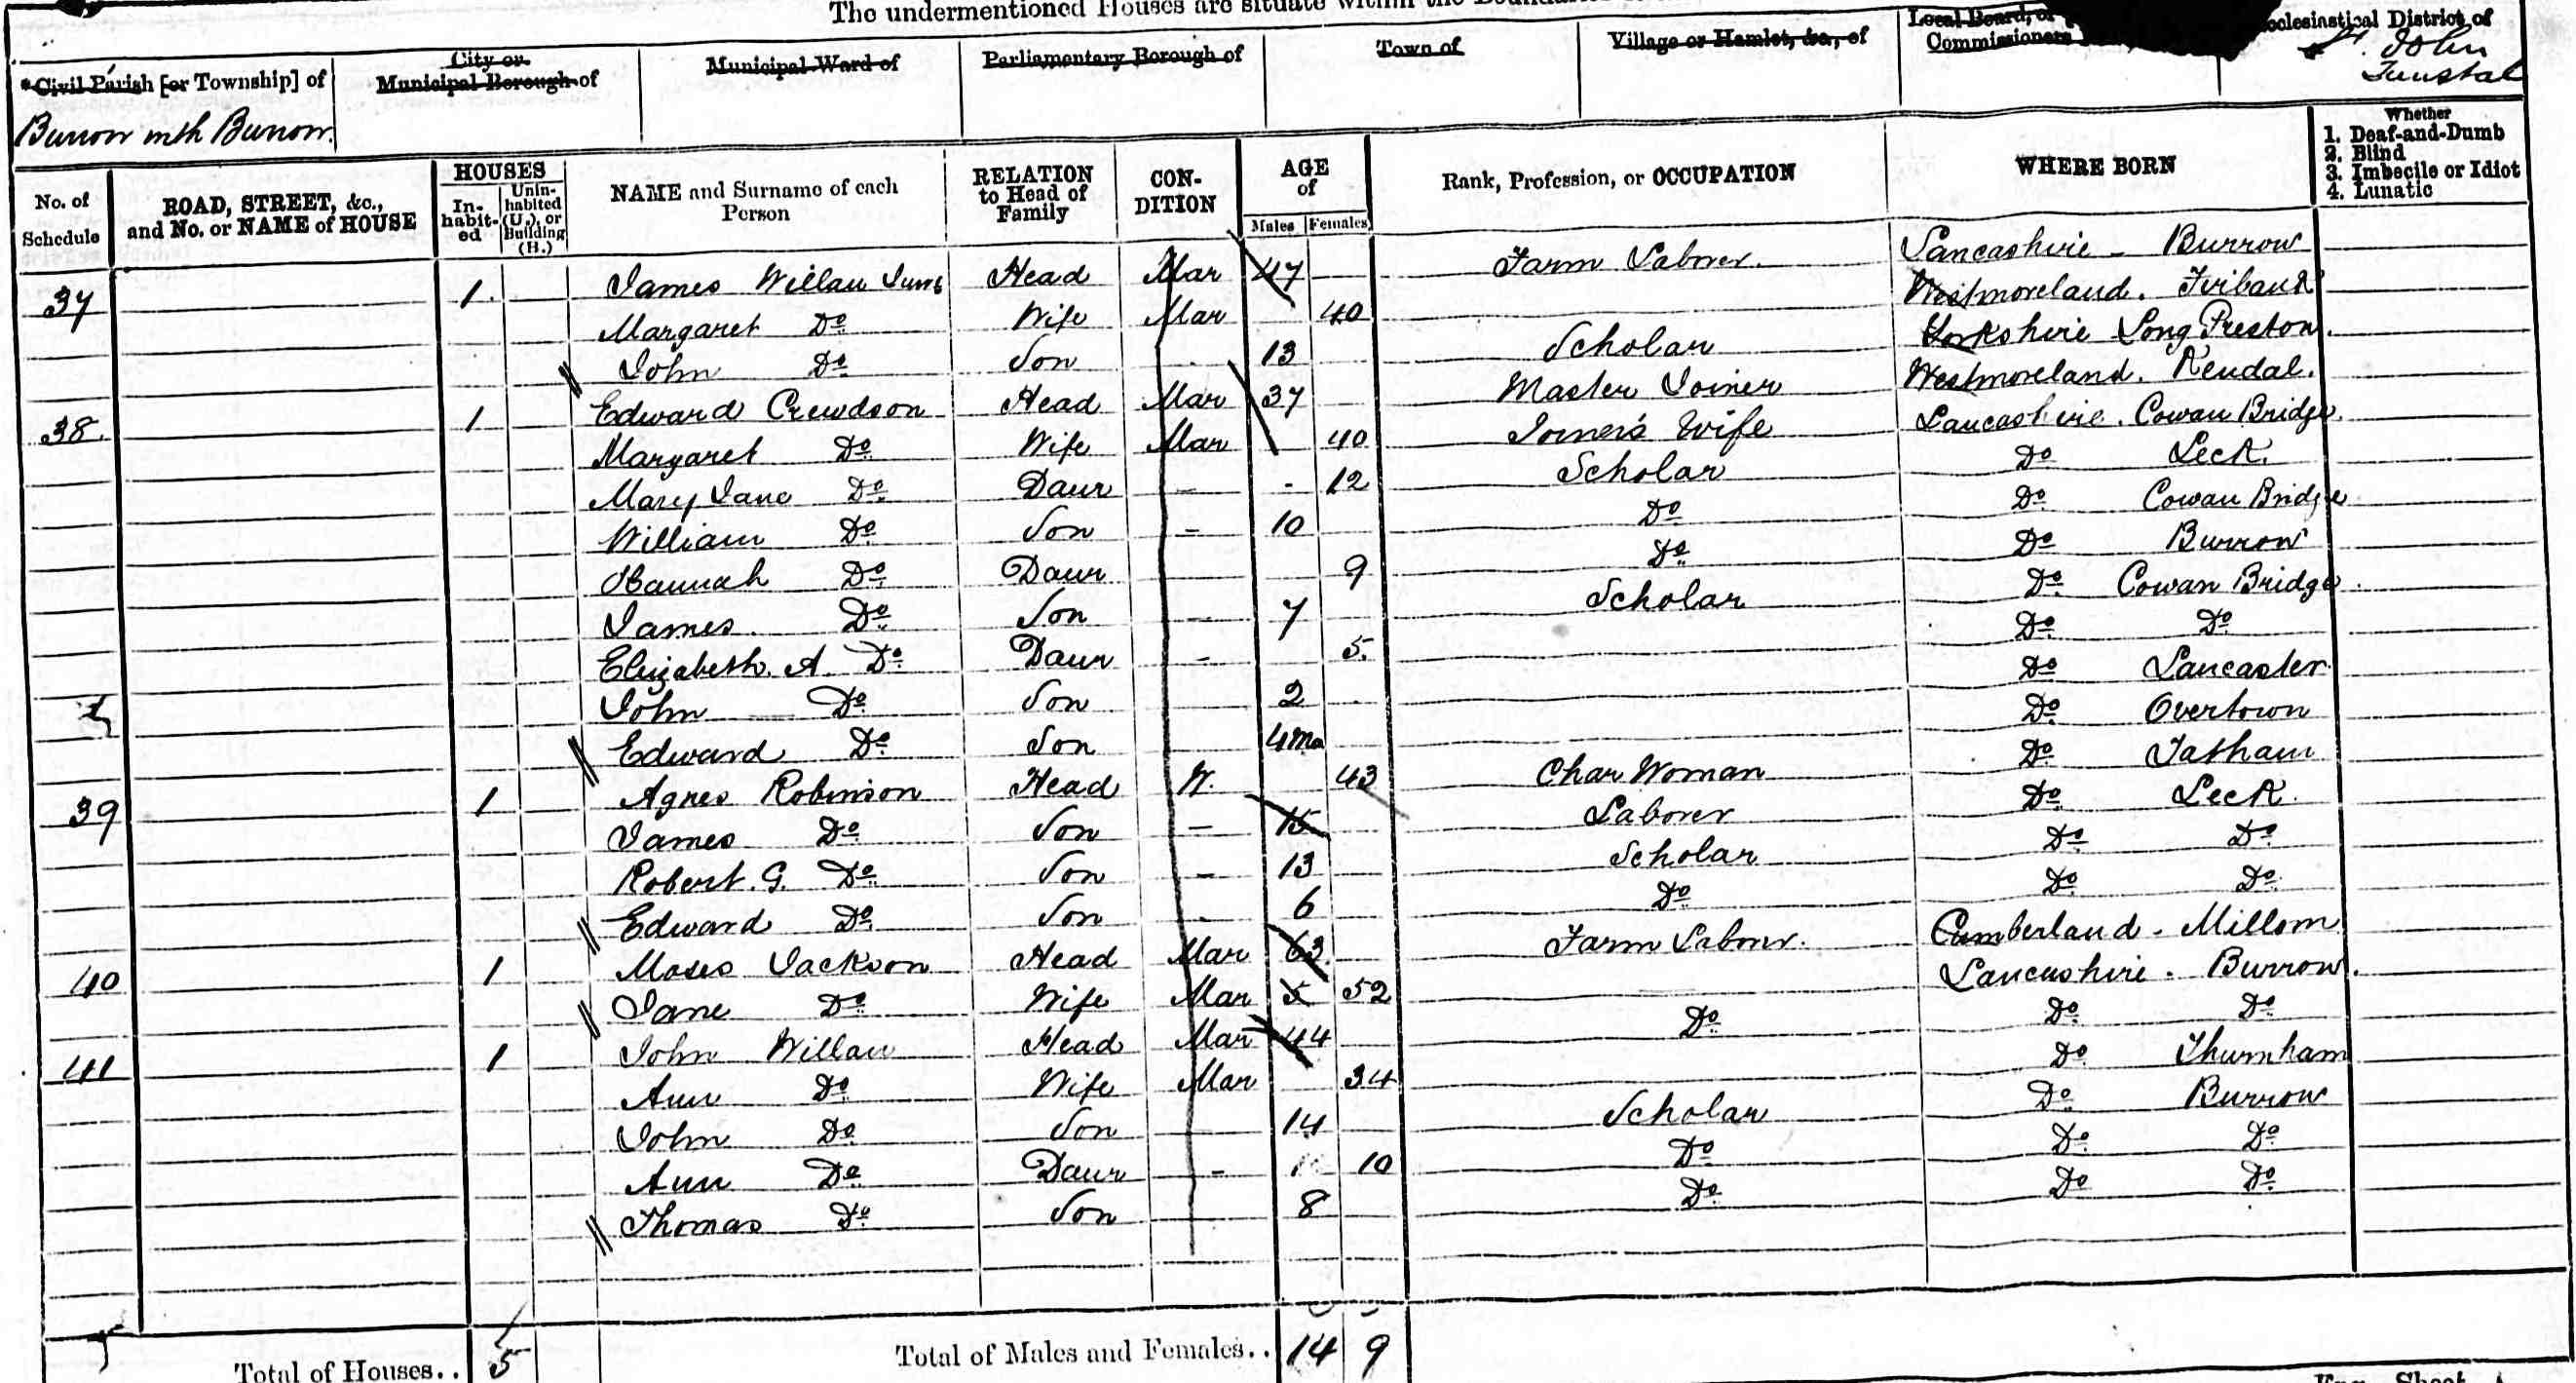 The undermentioned Houses are situate within the
*Civil Parish [or Township] of
City or
Municipal Borough of
Municipal Ward of
Parliamentary Borough of
Town of
Village or Hamlet, &c., of
Local Board, or
Commissioners
Ecclesiastical District of
St. John
Tunstal
Burrow with Burrow.
No. of Schedule
ROAD, STREET, &c., and No. or NAME of HOUSE
HOUSES
In-habit-ed
Unin-habited (U.), or Building (B.)
NAME and Surname of each Person
RELATION to Head of Family
CON-DITION
AGE of
Males Females
Rank, Profession, or OCCUPATION
WHERE BORN
Whether
1. Deaf-and-Dumb
2. Blind
3. Imbecile or Idiot
4. Lunatic
37 1 James Willan Junr Head Mar 47 Farm Laborer. Lancashire - Burrow
Margaret Do Wife Mar 40 Westmoreland. Firbank
John Do Son 13 Scholar Yorkshire Long Preston.
38. 1 Edward Crewdson Head Mar 37 Master Joiner Westmoreland. Kendal.
Margaret Do Wife Mar 40 Joiner's Wife Lancashire. Cowan Bridge.
Mary Jane Do Daur - - 12 Scholar Do Leck.
William Do Son - 10 Do Do Cowan Bridge
Hannah Do Daur 9 Do Do Burrow
James Do Son - 7 Scholar Do Cowan Bridge.
Elizabeth. A. Do Daur - 5. Do Do
John Do Son 2 Do Lancaster.
Edward Do Son 4mo Do Overtown
39 1 Agnes Robinson Head W. 43 Char Woman Do Tatham
James Do Son - 15 Laborer Do Leck.
Robert. G. Do Son - 13 Scholar Do Do
Edward Do Son - 6 Do Do Do
40 1 Moses Jackson Head Mar 63 Farm Labour. Cumberland. Millom
Jane Do Wife Mar 52 Lancashire. Burrow.
41 1 John Willan Head Mar 44 Do Do Do
Ann Do Wife Mar 34 Do Thurnham
John Do Son 14 Scholar Do Burrow
Ann Do Daur - 10 Do Do Do
Thomas Do Son 8 Do Do Do
Total of Houses.. 5
Total of Males and Females.. 14 9